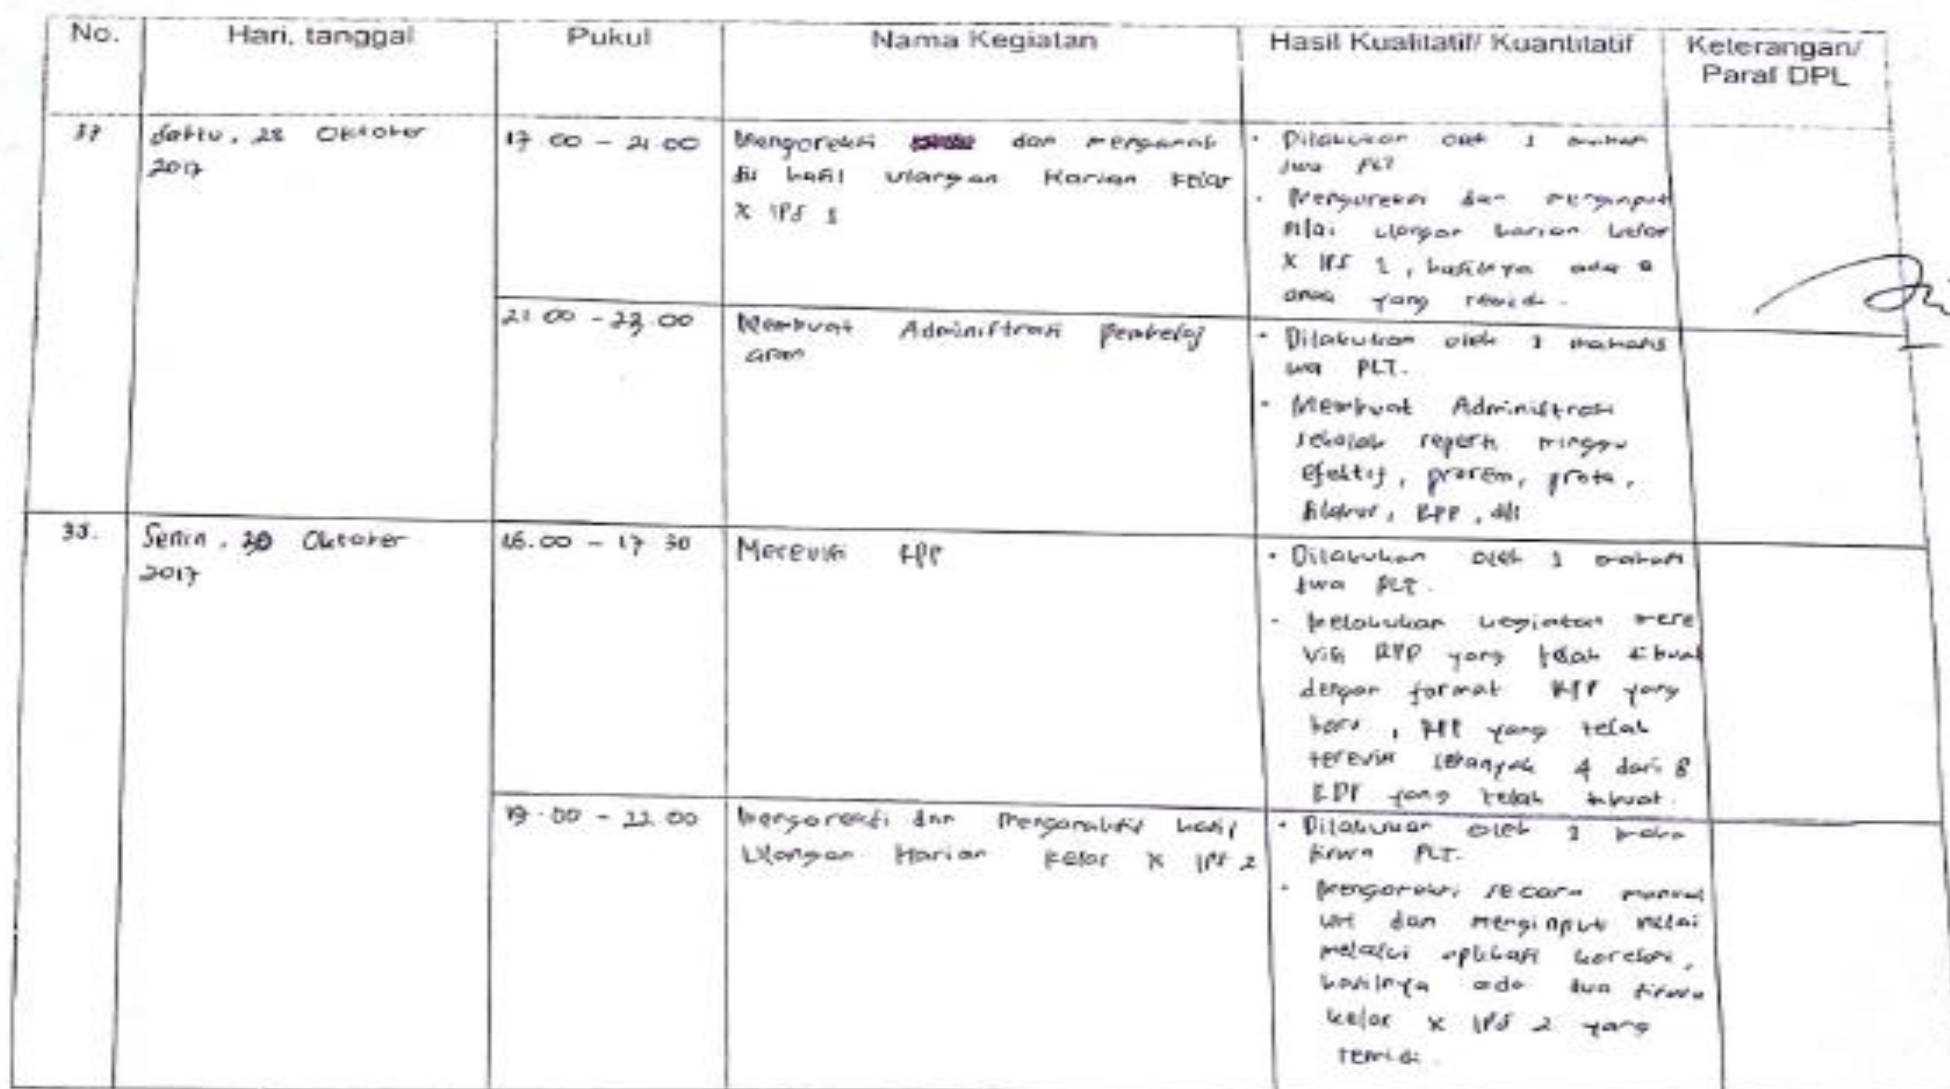 No. Hari, tanggal Pukul Nama Kegiatan Hasil Kualitatif/ Kuantitatif Keterangan/
Paraf DPL
37 Sabtu, 28 Oktober
2017
17.00 - 21.00
Mengoreksi dan menganali
sis hasil ulangan Harian kelas
X IPS 1
- Dilakukan oleh 1 mahasi
swa PLT
- Mengoreksi dan menginput
nilai ulangan harian kelas
X IPS 1, hasilnya ada 8
anak yang remidi.
21.00 - 23.00
Membuat Administrasi Pembelaj
aran
- Dilakukan oleh 1 mahasis
wa PLT.
- Membuat Administrasi
sekolah seperti minggu
efektif, prosem, prota,
silabus, RPP, dll
38. Senin, 30 Oktober
2017
16.00 - 17.30
Merevisi RPP
- Dilakukan oleh 1 mahasi
swa PLT.
- Melakukan kegiatan mere
visi RPP yang telah dibuat
dengan format RPP yang
baru, RPP yang telah
terevisi sebanyak 4 dari 8
RPP yang telah dibuat.
19.00 - 22.00
Mengoreksi dan Menganalisis hasil
Ulangan Harian kelas X IPS 2
- Dilakukan oleh 1 maha
siswa PLT.
- Mengoreksi secara manual
UH dan menginput nilai
melalui aplikasi koreksi,
hasilnya ada dua siswa
kelas X IPS 2 yang
remidi.